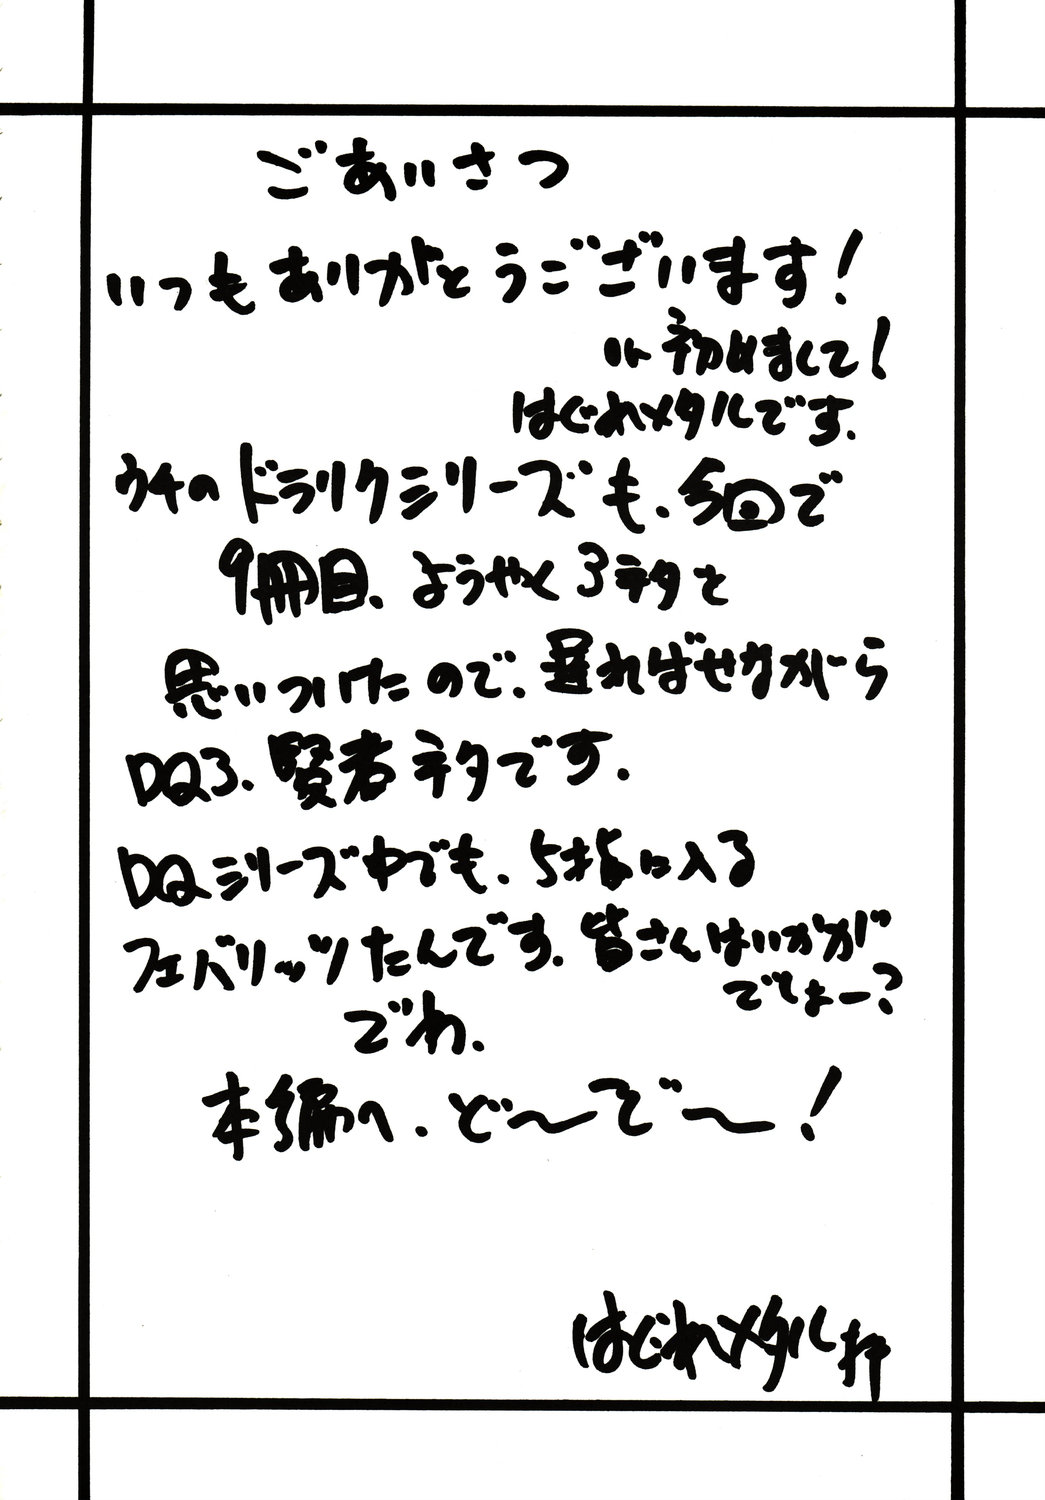 ごあいさつ
いつもありがとうございます!
初めまして!
はぐれメタルです.
ウチのドラクシリーズも、今回で
9冊目、ようやく3ネタと
思いついたので、遅ればせながら
DQ3、賢者ネタです.
DQシリーズ中でも、5指に入る
フェバリッツたんです.皆さんはいかがが
でしょー?
でわ、
本編へ、ど〜ぞ〜!
はぐれメタル拝